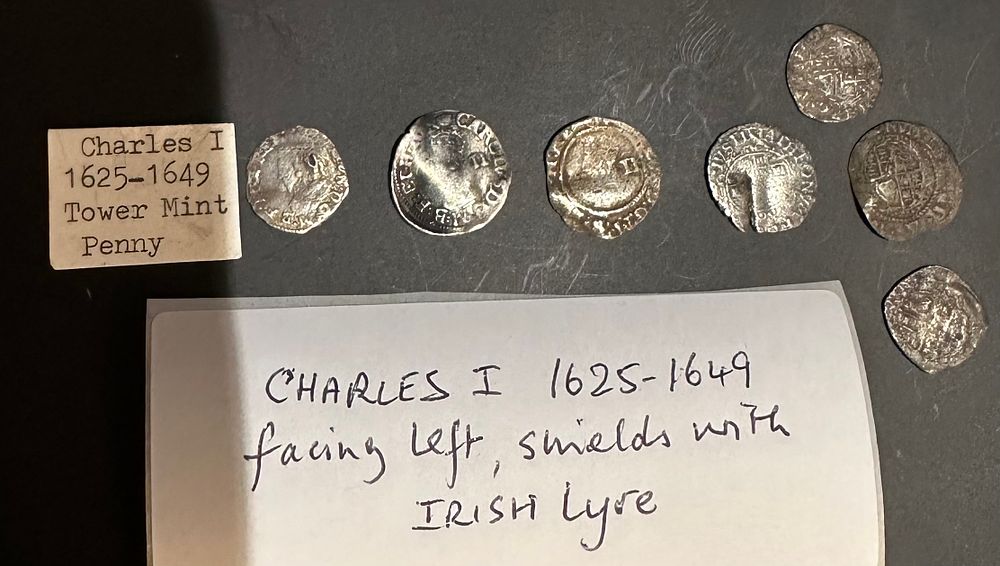 Charles I
1625-1649
Tower Mint
Penny
CHARLES I 1625-1649
facing left, shields with
IRISH Lyre